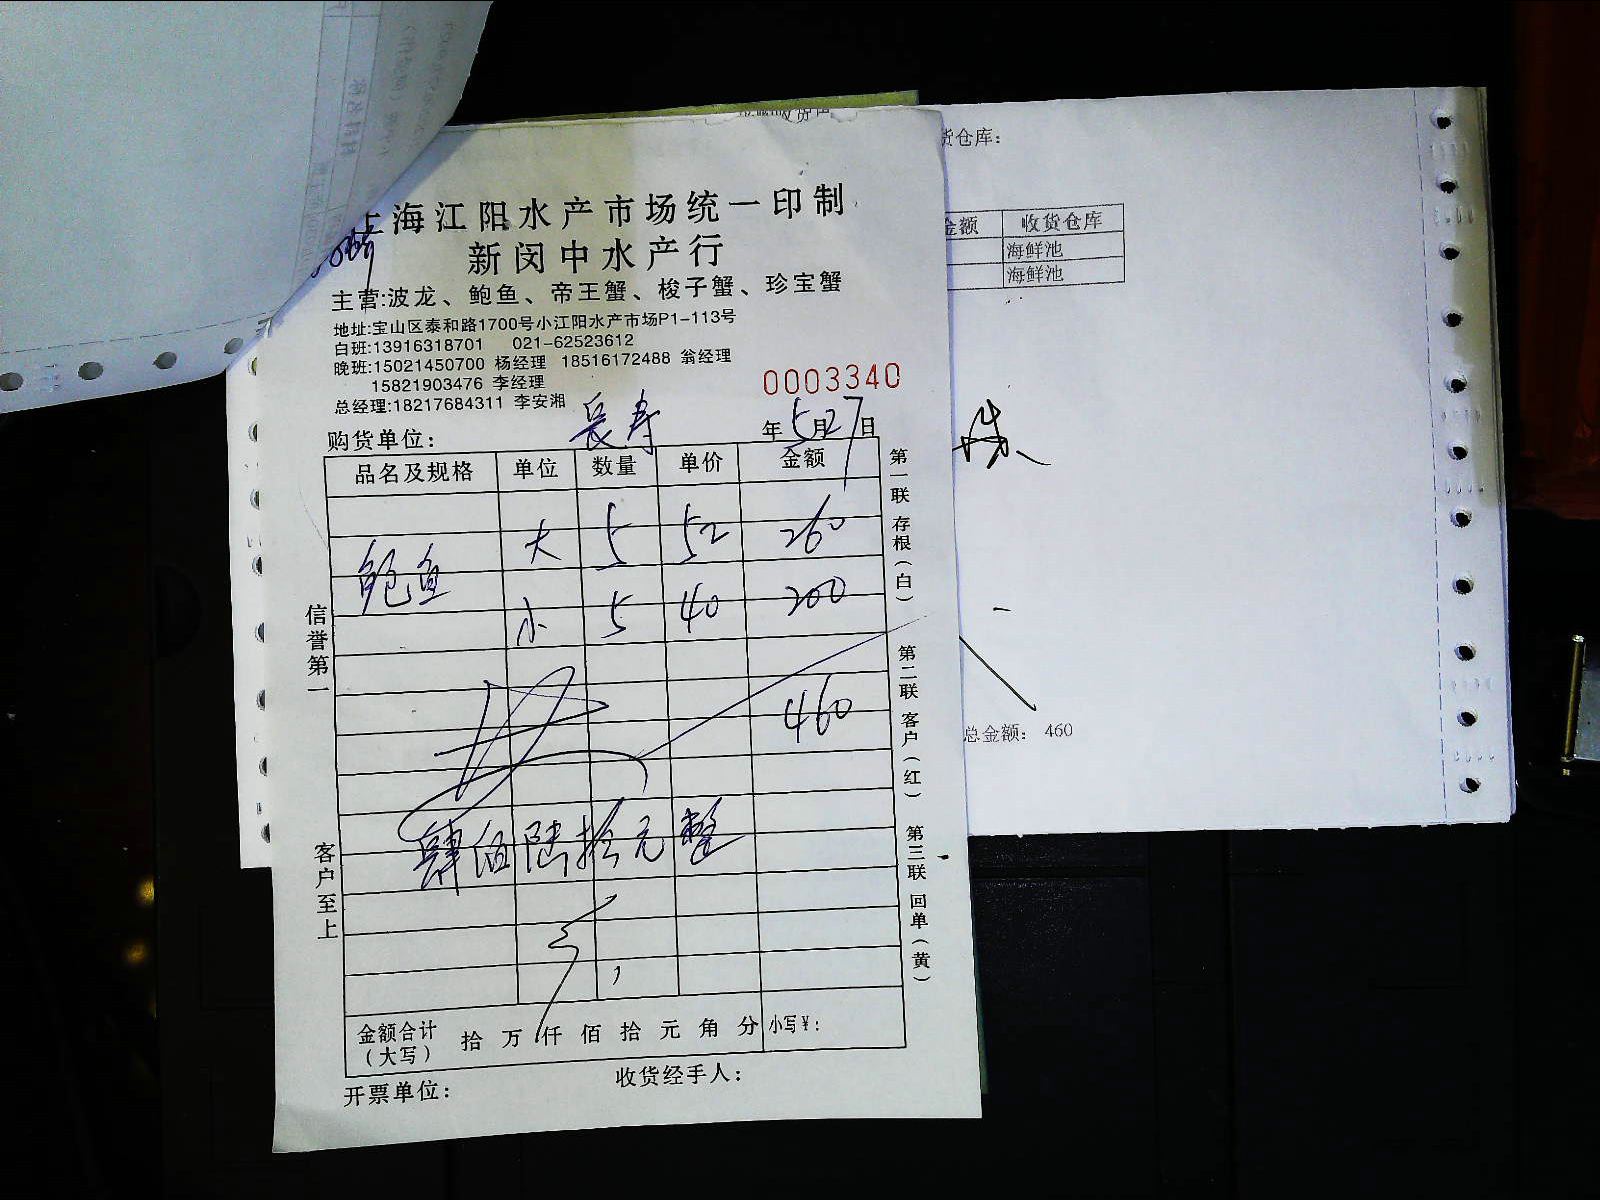 上海江阳水产市场统一印制
新闵中水产行
主营:波龙、鲍鱼、帝王蟹、梭子蟹、珍宝蟹
地址:宝山区泰和路1700号小江阳水产市场P1-113号
白班:13916318701 021-62523612
晚班:15021450700 杨经理 18516172488 翁经理
15821903476 李经理
总经理:18217684311 李安湘
0003340
购货单位: 长寿 年5月27日
品名及规格 单位 数量 单价 金额
鲍鱼 大 5 52 260
小 5 40 200
460
肆佰陆拾元整
金额合计(大写) 拾 万 仟 佰 拾 元 角 分 小写¥:
开票单位: 收货经手人:
信誉第一 客户至上
第一联 存根(白) 第二联 客户(红) 第三联 回单(黄)
货仓库:
金额 收货仓库
海鲜池
海鲜池
总金额: 460